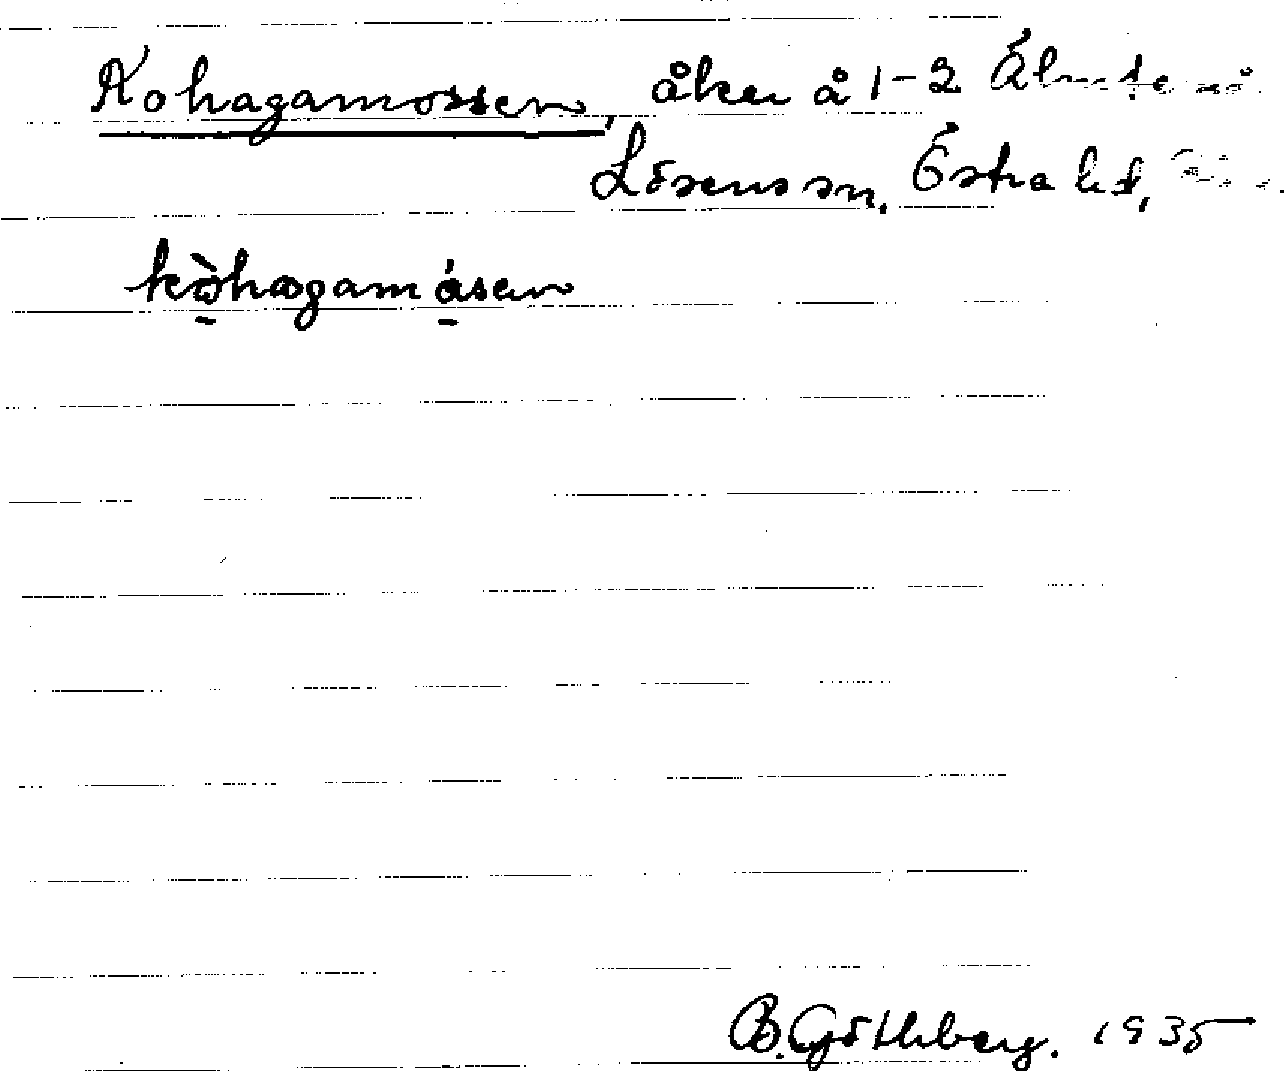 Kohagamossen, åker å 1-2
Lösens sn. Östra hd,
kòhagamåsen
B. Göthberg. 1935